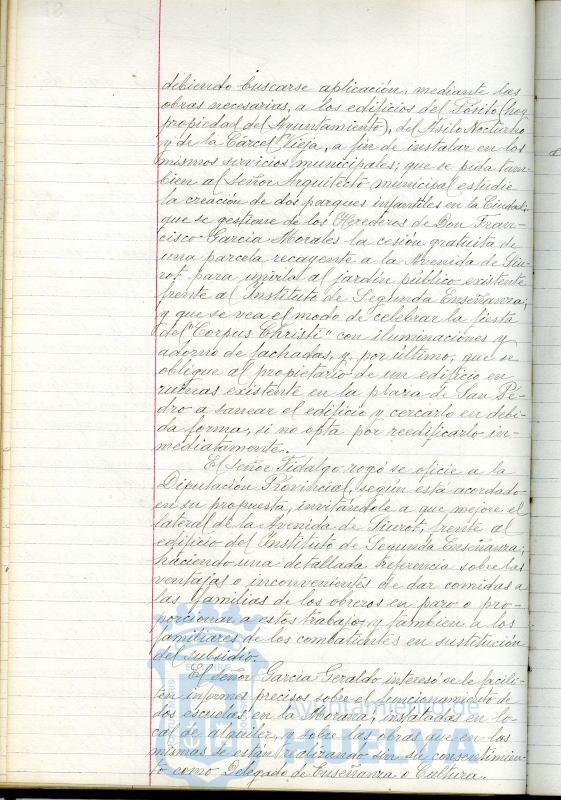 debiendo buscarse aplicación, mediante las
obras necesarias, a los edificios del Pósito (hoy
propiedad del Ayuntamiento), del Asilo Nocturno
y de la Cárcel Vieja, a fin de instalar en los
mismos servicios municipales; que se pida tam-
bien al Señor Arquitecto municipal estudie
la creación de dos parques infantiles en la Ciudad;
que se gestione de los Herederos de Don Fran-
cisco García Morales la cesión gratuita de
una parcela recayente a la Avenida de Siu-
rot para unirla al jardín público existente
frente al Instituto de Segunda Enseñanza;
y que se vea el modo de celebrar la fiesta
del "Corpus Christi" con iluminaciones y
adorno de fachadas, y, por último, que se
obligue al propietario de un edificio en
ruinas existente en la plaza de San Pe-
dro a sanear el edificio y cercarlo en debi-
da forma, si no opta por reedificarlo in-
mediatamente.
El Señor Fidalgo rogó se oficie a la
Diputación Provincial, según está acordado
en su propuesta, invitándole a que mejore el
lateral de la Avenida de Siurot, frente al
edificio del Instituto de Segunda Enseñanza;
haciendo una detallada referencia sobre las
ventajas o inconvenientes de dar comidas a
las familias de los obreros en paro o pro-
porcionar a estos trabajo, y tambien a los
familiares de los combatientes en sustitución
del subsidio.
El Señor García Geraldo interesó se le facili-
ten informes precisos sobre el funcionamiento de
dos escuelas en la Morana, instaladas en lo-
cal de alquiler, y sobre las obras que en las
mismas se están realizando sin su consentimien-
to como Delegado de Enseñanza o Cultura.
Ayuntamiento de
HUELVA